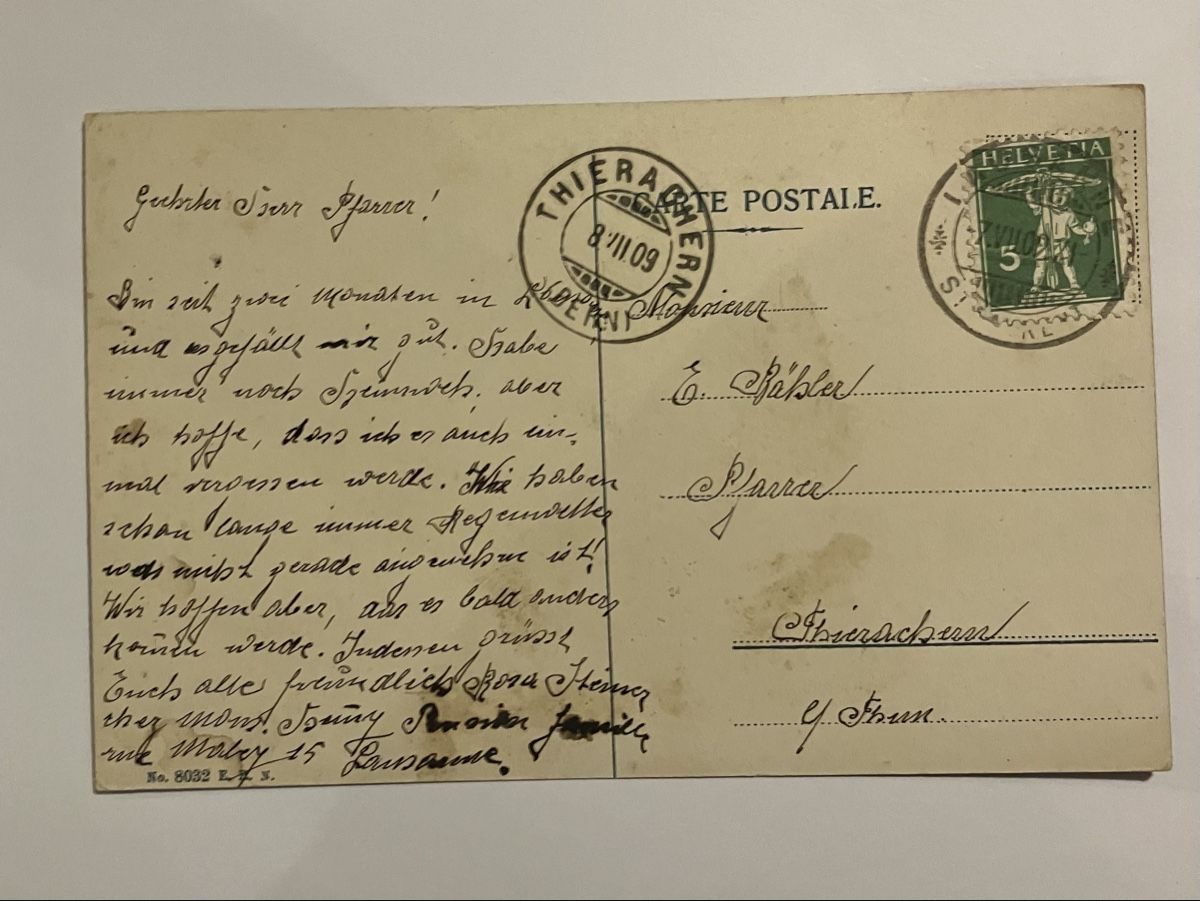 Geehrter Herr Pfarrer!
Bin seit zwei Monaten in
und es gefällt mir gut. Habe
immer noch Heimweh, aber
ich hoffe, dass ich es auch ein-
mal vergessen werde. Wir haben
schon lange immer Regenwetter
was nicht gerade angenehm ist!
Wir hoffen aber, das es bald anders
kom̄en werde. Indessen grüsst
Euch alle freundlich Rosa Steiner
chez Mons. Pension famille
rue 15 Lausanne.
No. 8032
THIERACHERN
8.VII.09
(BERN)
CARTE POSTALE.
HELVETIA
5
Monsieur
E. Bähler
Pfarrer
Thierachern
b/ Thun.